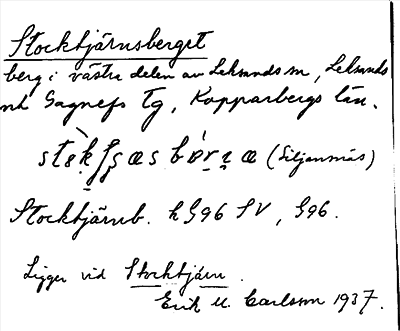 Stocktjärnsberget
berg i västra delen av Leksands sn, Leksands
och Gagnefs tg, Kopparbergs län.
(Siljansnäs)
Stocktjärnb. hG96 SV, G96.
Ligger vid Stocktjärn.
Erik U. Carlsson 1937.